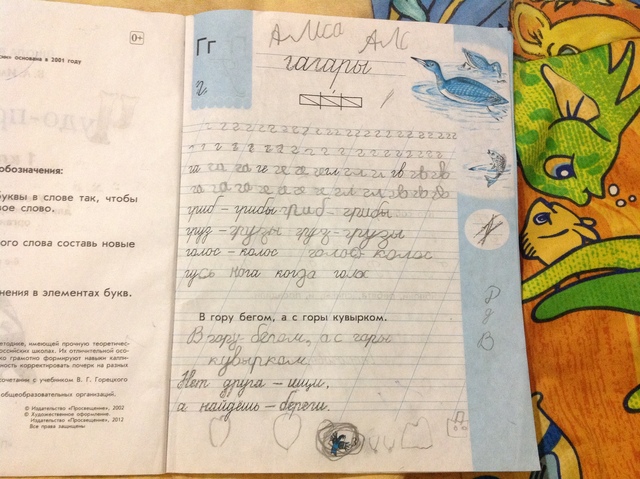 0+
ии основана в 2001 году
обозначения:
буквы в слове так, чтобы
вое слово.
ого слова составь новые
нения в элементах букв.
методике, имеющей прочную теоретичес-
оссийских школах. Их отличительной осо-
но грамотно формируют навыки калли-
ность корректировать почерк на разных
сочетание с учебником В. Г. Горецкого
общеобразовательных организаций.
© Издательство «Просвещение», 2002
© Художественное оформление.
Издательство «Просвещение», 2012
Все права защищены
Гг
Алиса Алс
гагары
г.
г г г г г г г г г г г г г г г г г г
г г г г г г г г г г г г г г г г
га га га ге ге ге ге гл гл гл гв гв гв
га га га ге ге ге ге гл гл гв гв гв
гриб – грибы гриб – грибы
груз – грузы груз – грузы
голос – колос голос колос
гусь нога когда голос
В гору бегом, а с горы кувырком.
В гору бегом, а с горы
кувырком
Нет друга – ищи,
а найдёшь – береги.
Р
д
В